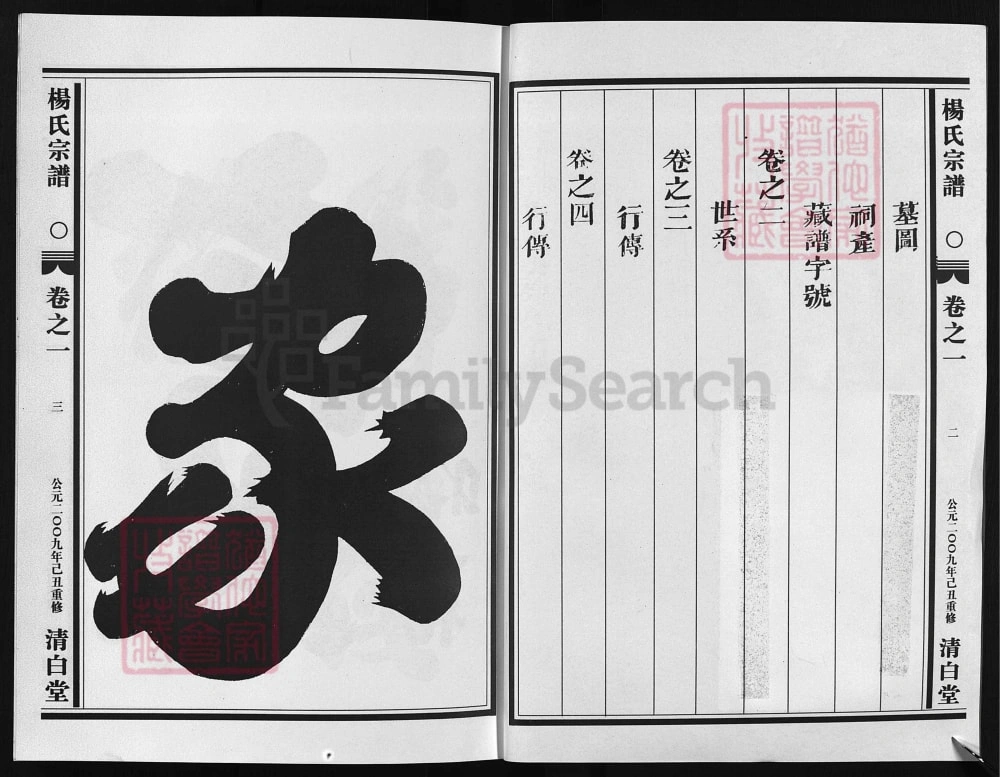 楊氏宗譜
卷之一
二
公元二〇〇九年己丑重修
清白堂
墓圖
祠產
藏譜字號
卷之二
世系
卷之三
行傳
卷之四
行傳
家
楊氏宗譜
卷之一
三
公元二〇〇九年己丑重修
清白堂
FamilySearch